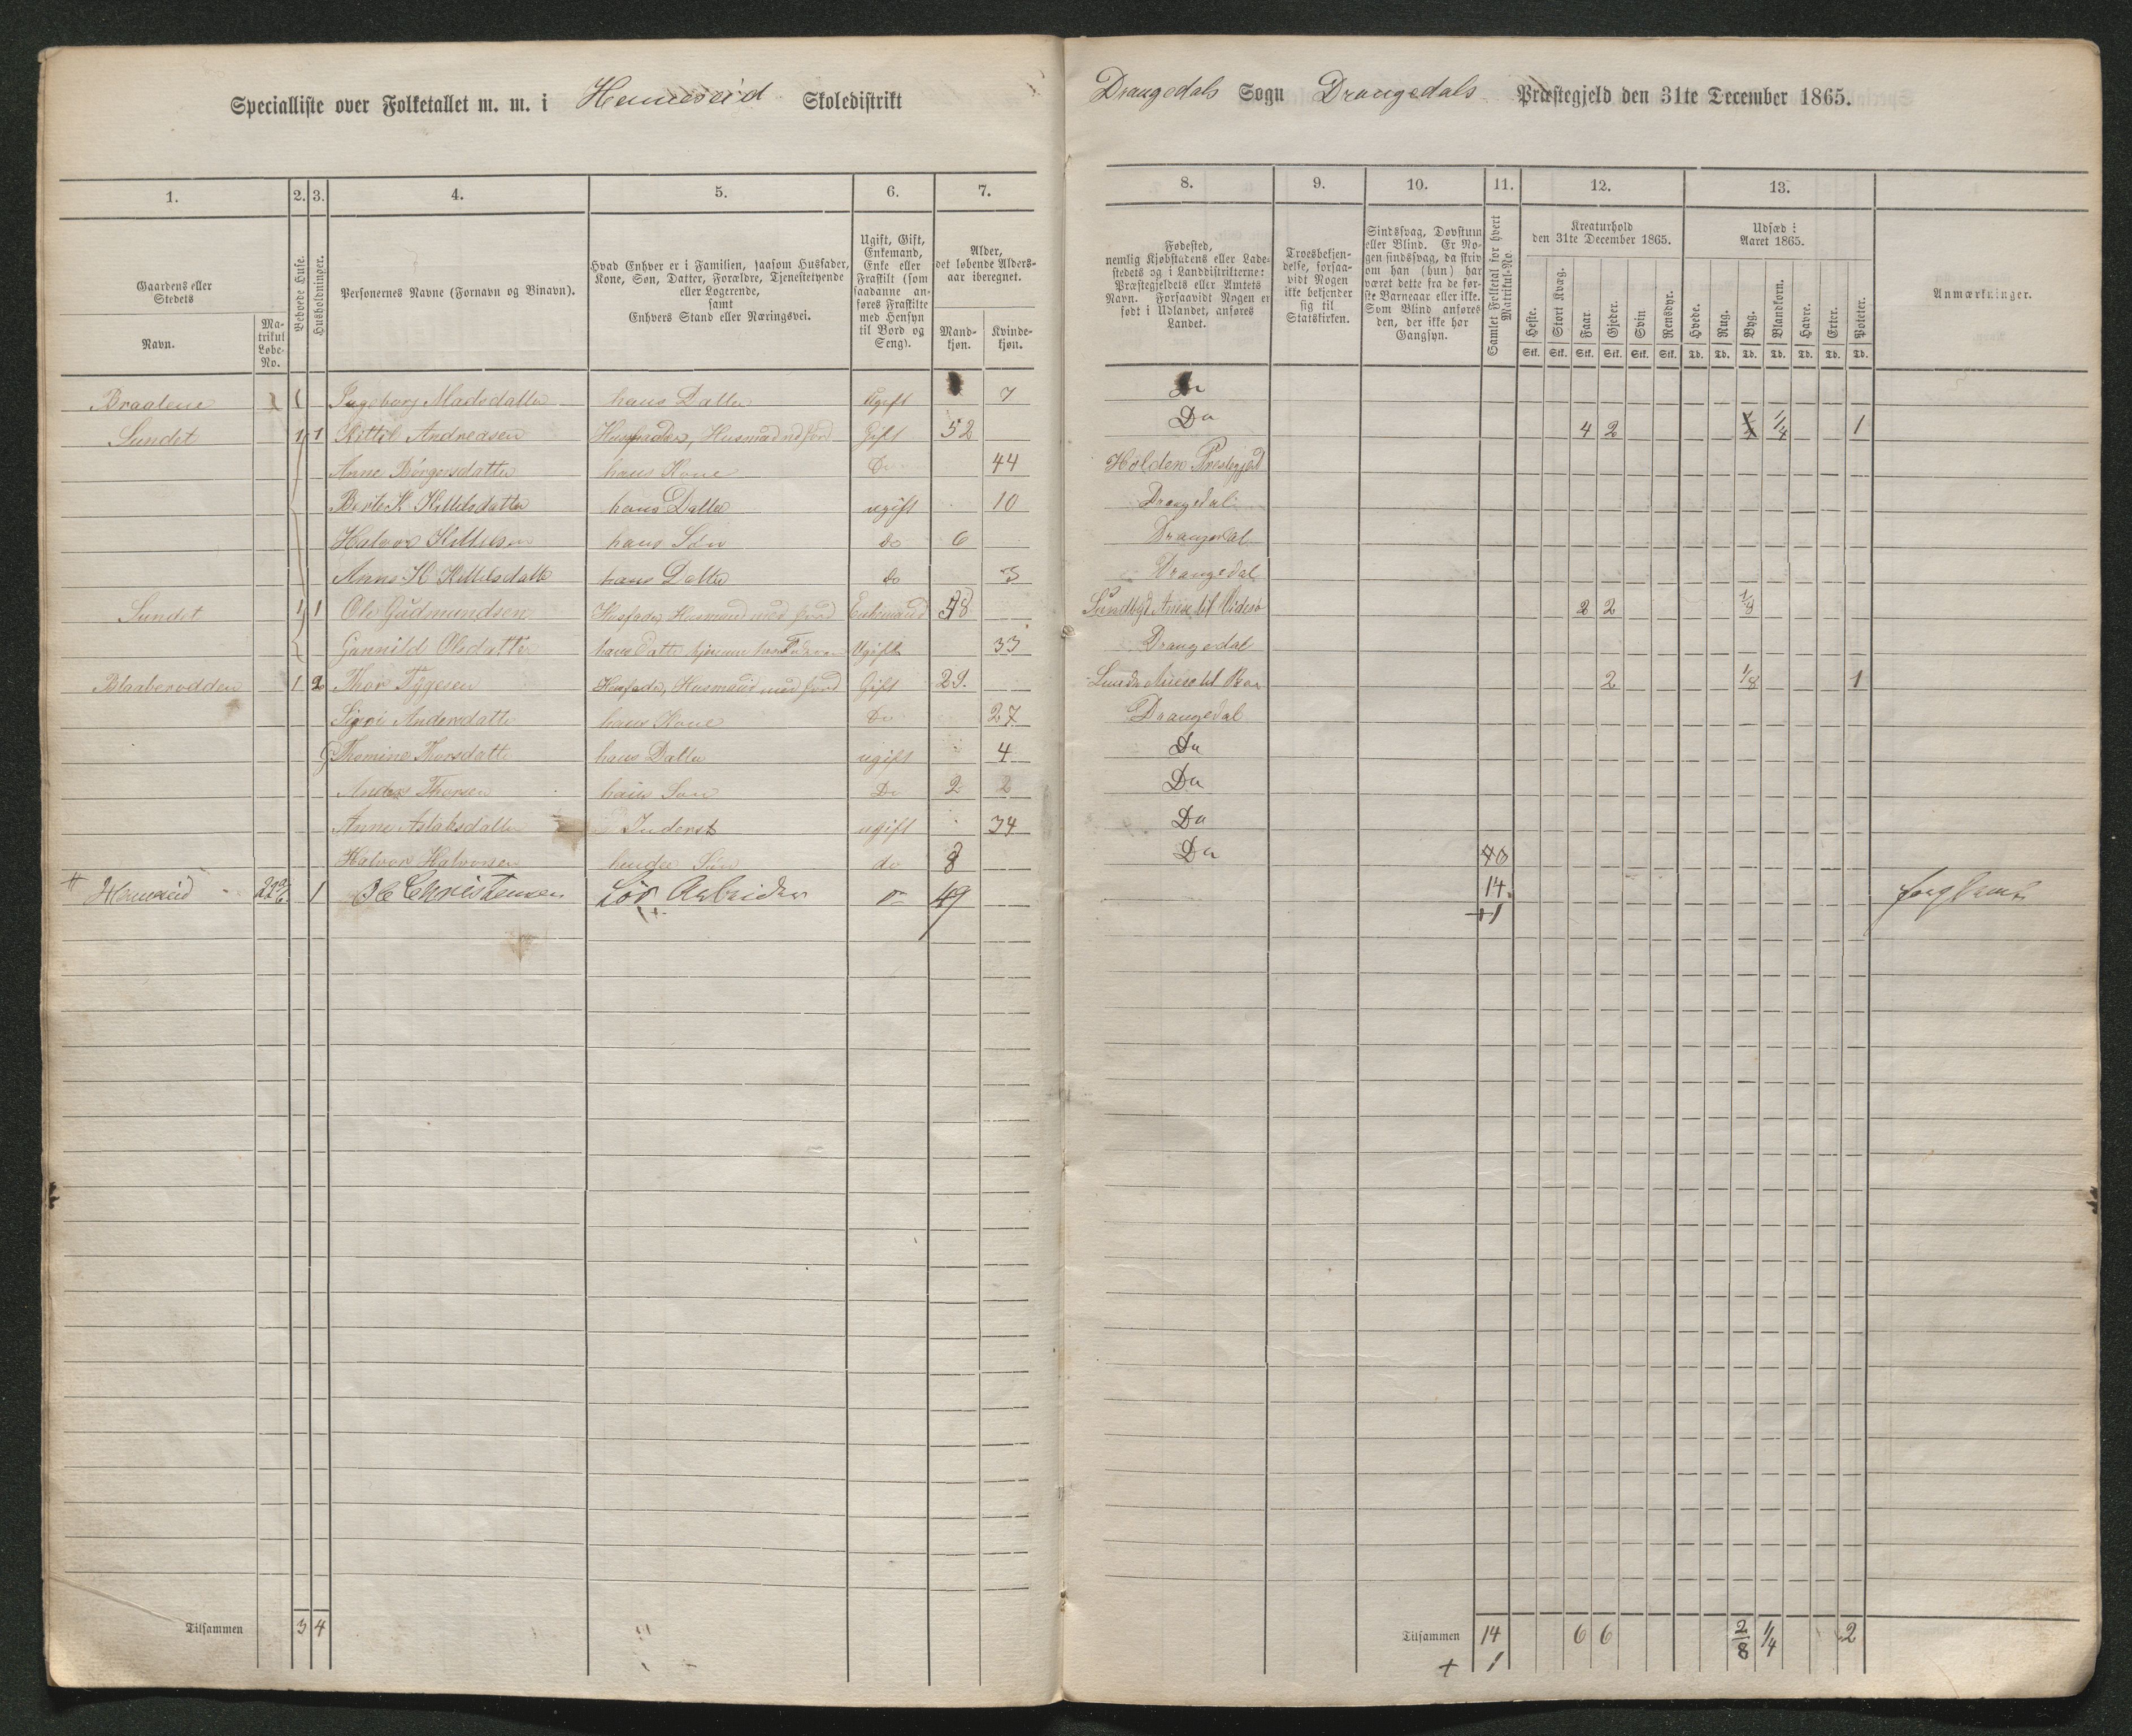 Specialliste over Folketallet m. m. i Henneseid Skoledistrikt
Drangedals Sogn Drangedals Præstegjeld den 31te December 1865.
1. 2. 3. 4. 5. 6. 7.
8. 9. 10. 11. 12. 13.
Gaardens eller Stedets
Navn.
Matrikul Løbe-No.
Beboede Huse.
Husholdninger.
Personernes Navne (Fornavn og Binavn).
Hvad Enhver er i Familien, saasom Husfader, Kone, Søn, Datter, Forældre, Tjenestetyende eller Logerende,
samt
Enhvers Stand eller Næringsvei.
Ugift, Gift, Enkemand, Enke eller Fraskilt (som saadanne anføres Fraskilte med Hensyn til Bord og Seng).
Alder, det løbende Aldersaar iberegnet.
Mandkjøn. Kvindekjøn.
Fødested,
nemlig Kjøbstadens eller Ladestedets og i Landdistrikterne: Præstegjeldets eller Amtets Navn. Forsaavidt Nogen er født i Udlandet, anføres Landet.
Troesbekjendelse, forsaavidt Nogen ikke bekjender sig til Statskirken.
Sindssvag, Døvstum eller Blind. Er Nogen sindssvag, da skriv om han (hun) har været dette fra de første Barneaar eller ikke. Som Blind anføres den, der ikke har Gangsyn.
Samlet Folketal for hvert Matrikul-No.
Kreaturhold
den 31te December 1865.
Heste. Stort Kvæg. Faar. Gjeder. Svin. Rensdyr.
Stk. Stk. Stk. Stk. Stk. Stk.
Udsæd i
Aaret 1865.
Hvede. Rug. Byg. Blandkorn. Havre. Erter. Poteter.
Td. Td. Td. Td. Td. Td. Td.
Anmærkninger.
Braatene Ingeborg Madsdatter hans Datter Ugift 7 Do
Sundet 1 1 Kittil Andreasen Husfader, Husmand med Jord Gift 52 Do 4 2 1/4 1
Anne Børgersdatter hans Kone Do 44 Holden Prestegjeld
Berte K Kittelsdatter hans Datter ugift 10 Drangedal
Halvor Kittilsen hans Søn do 6 Drangedal
Anne H Kittelsdatter hans Datter do 3 Drangedal
Sundet 1 1 Ole Gudmundsen Husfader Husmand med Jord Enkemand 2 2 1/8
Gunnild Olsdatter hans Datter Ugift 33 Drangedal
Blaaberodden 1 2 Thor Tygesen Husfader, Husmand med Jord Gift 29. Lunde Anex til Bøe 2 1/8 1
Signe Andersdatter hans Kone Do 27 Drangedal
Thomine Thorsdatter hans Datter ugift 4 Do
Anders Thorsen hans Søn Do 2 2 Do
Anne Aslaksdatter Inderst ugift 34 Do
Halvor Halvorsen hendes Søn do 8 Do
Henneseid 1 Christensen Løs Arbeider 49 14
+1
Tilsammen 3 4
Tilsammen 14 6 6 2/8 1/4 2
+ 1